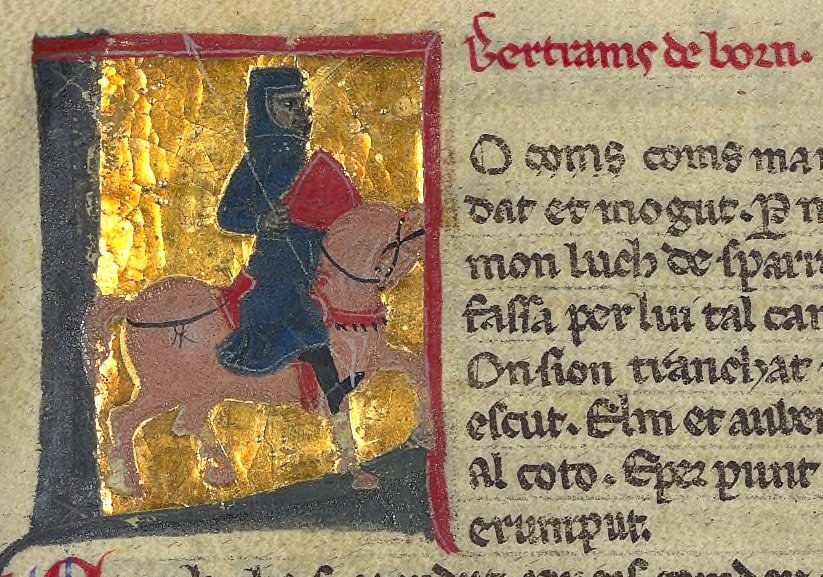 Bertrams de born.
O coms coms man
dat et mogut. P
mon luch de sparr
fassa per lui tal can
On sion tranchat
escut. Elm et auber
Al coto. Eper punt
erumput.